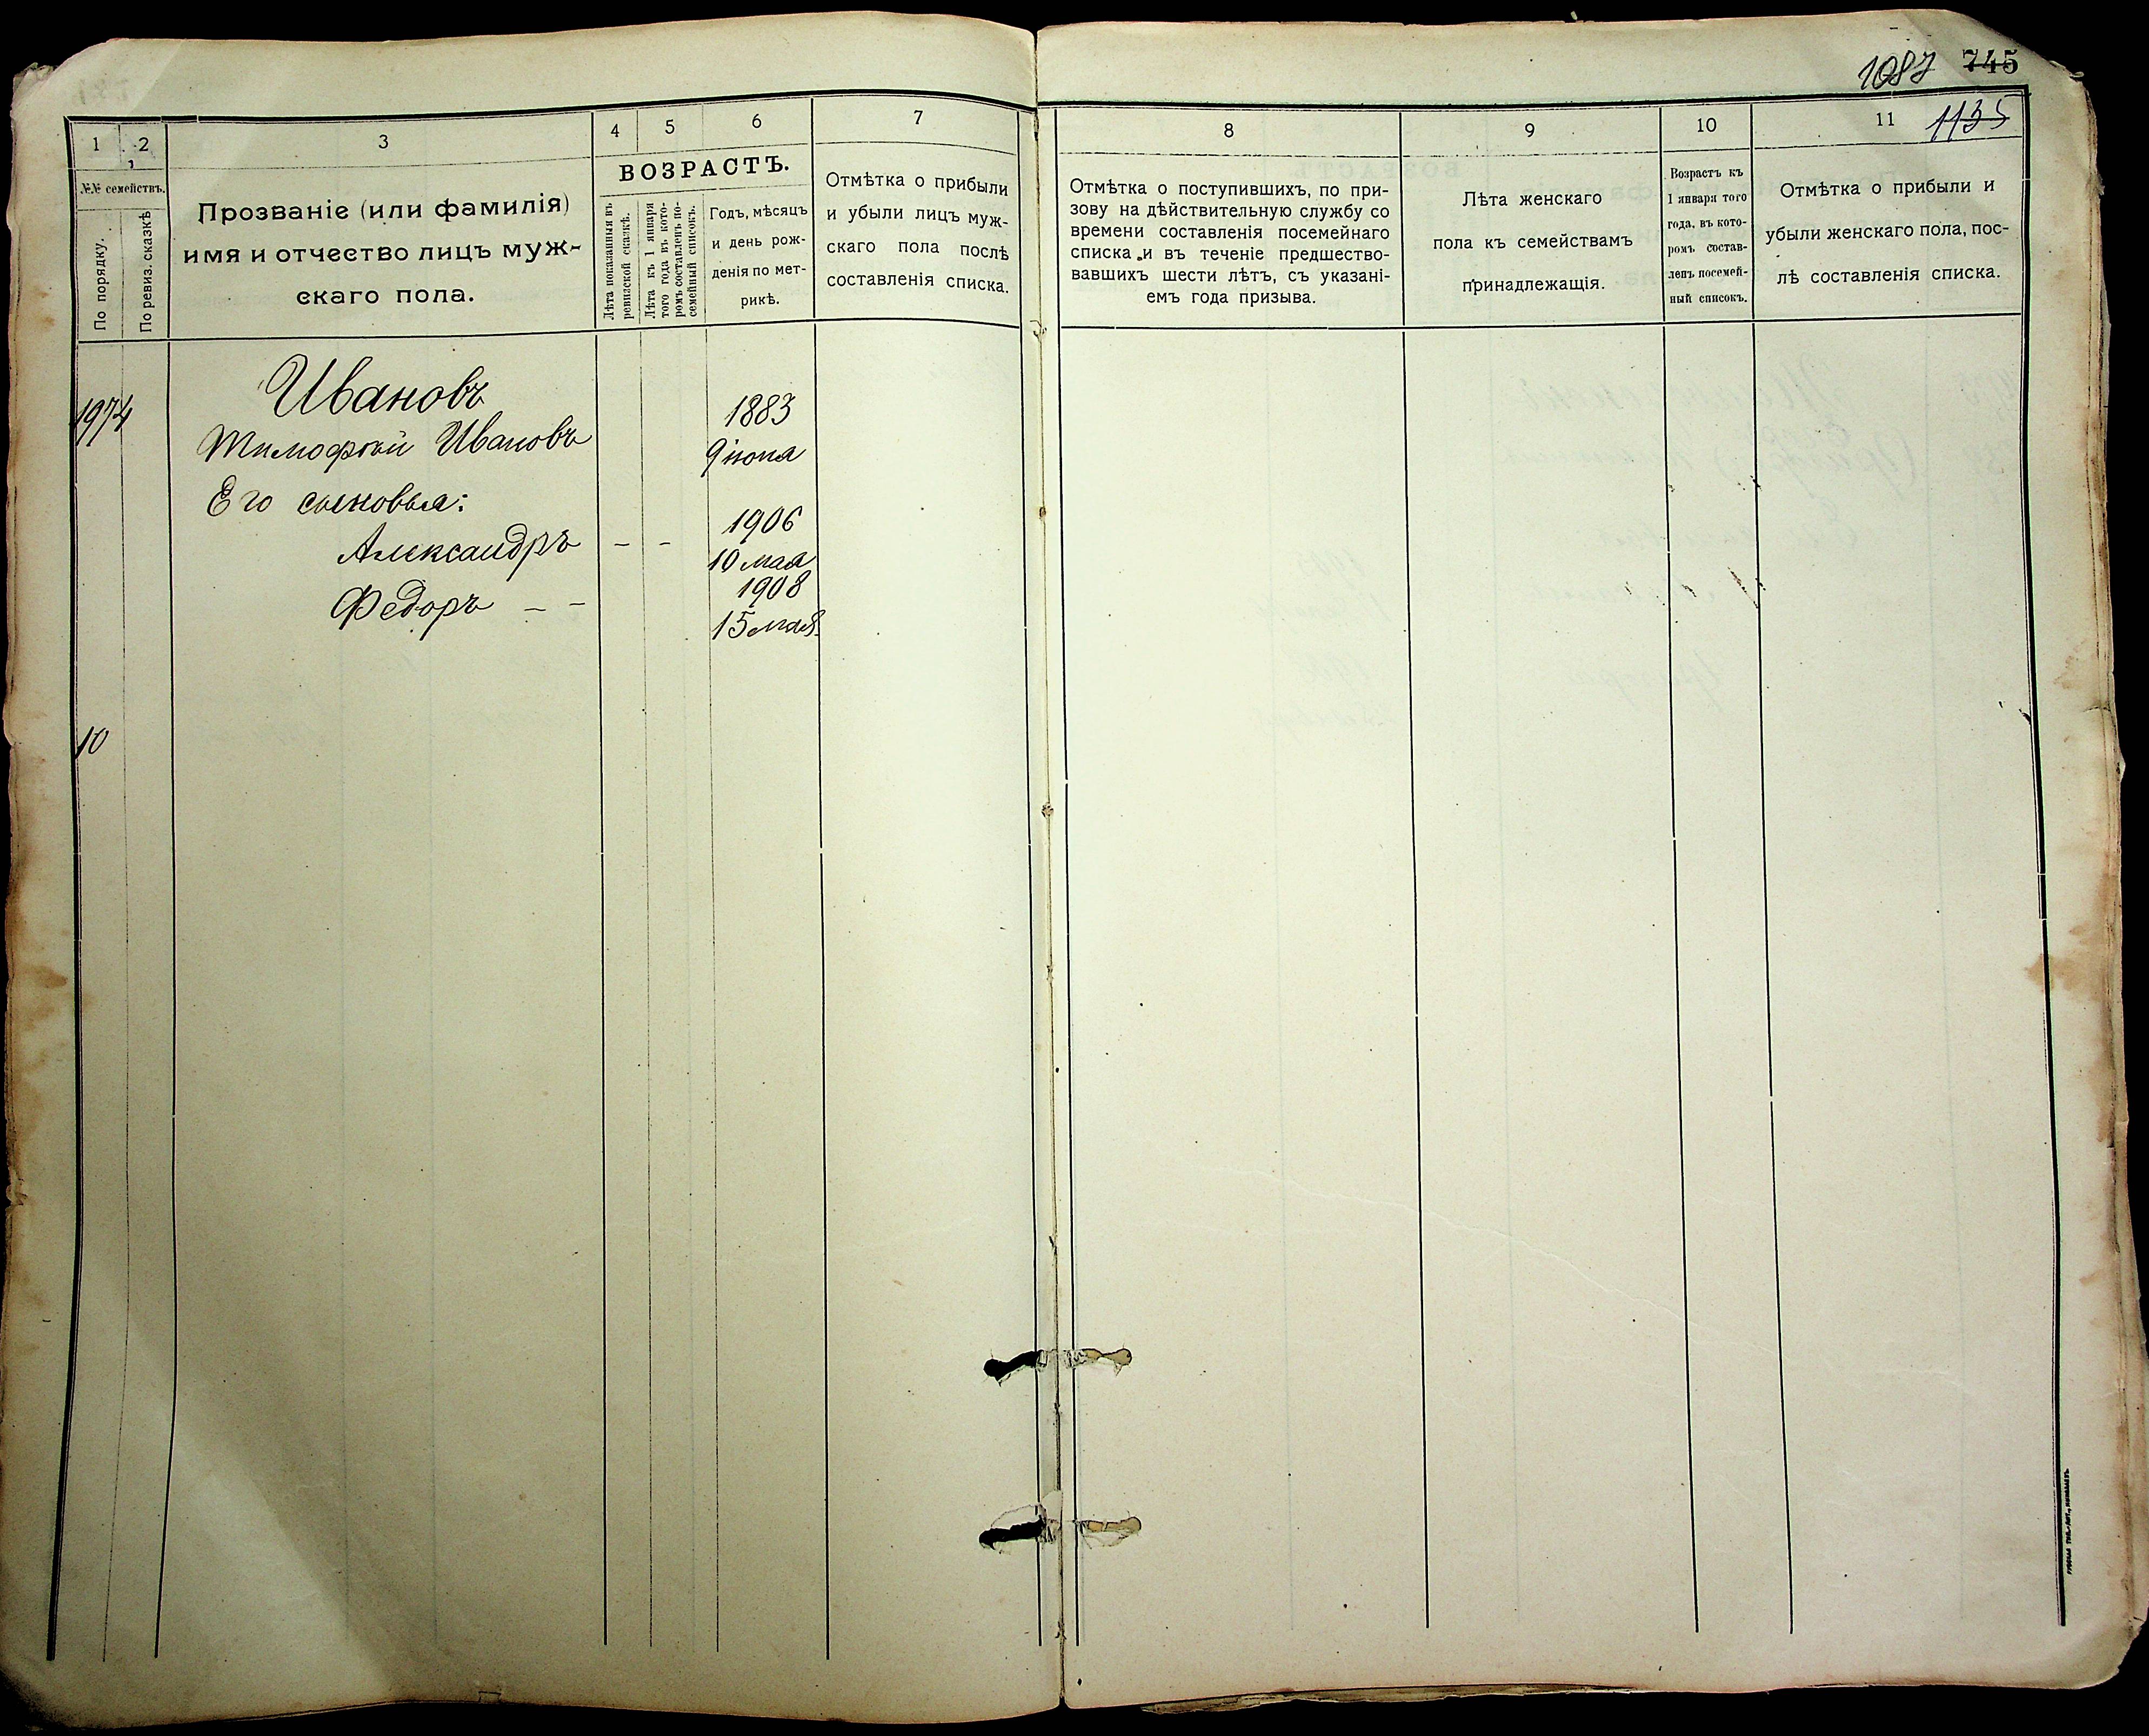 1087 745
1135
1 2 3 4 5 6 7
№№ семействъ.
По порядку.
По ревиз. сказкѣ
Прозваніе (или фамилія)
имя и отчество лицъ муж-
скаго пола.
ВОЗРАСТЪ.
Лѣта показанныя въ
ревизской сказкѣ.
Лѣта къ 1 января
того года въ кото-
ромъ составленъ по-
семейный списокъ.
Годъ, мѣсяцъ
и день рож-
денія по мет-
рикѣ.
Отмѣтка о прибыли
и убыли лицъ муж-
скаго пола послѣ
составленія списка.
8 9 10 11
Отмѣтка о поступившихъ, по при-
зову на дѣйствительную службу со
времени составленія посемейнаго
списка и въ теченіе предшество-
вавшихъ шести лѣтъ, съ указані-
емъ года призыва.
Лѣта женскаго
пола къ семействамъ
принадлежащія.
Возрастъ къ
1 января того
года, въ кото-
ромъ состав-
ленъ посемей-
ный списокъ.
Отмѣтка о прибыли и
убыли женскаго пола, пос-
лѣ составленія списка.
Ивановъ
1974 1883
Тимофѣй Ивановъ 9 іюня
Его сыновья:
1906
Александръ – – 10 мая
1908
Федоръ – – 15 мая
10